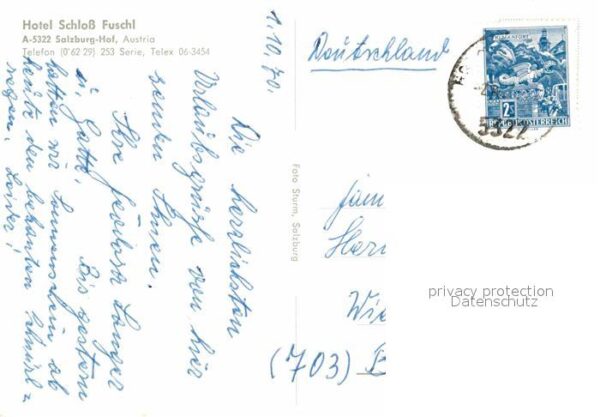 Hotel Schloß Fuschl
A-5322 Salzburg-Hof, Austria
Telefon (0'62 29) 253 Serie, Telex 06-3454
1.10.70.
Die herzlichsten
Urlaubsgrüsse von hier
senden Ihnen.
Ihre Langer
u. Gatte. Bis gestern
hatten wir Sonnenschein ab
heute den bekannten Schnürl=
regen, Leider!
Foto Sturm, Salzburg
Deutschland
KLAGENFURT
2S
REPUBLIK ÖSTERREICH
5322
Fam
Her
Wie
(703)
privacy protection
Datenschutz